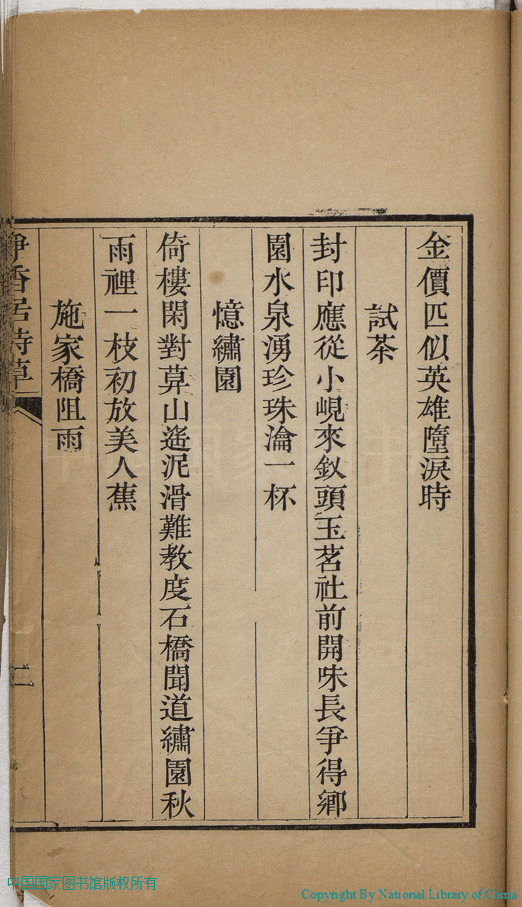 金價匹似英雄墮淚時
試茶
封印應從小峴來釵頭玉茗社前開味長爭得鄉
園水泉湧珍珠瀹一杯
憶繡園
倚樓閑對萛山遙泥滑難教度石橋聞道繡園秋
雨裡一枝初放美人蕉
施家橋阻雨
香居詩草
中国国家图书馆版权所有
Copyright By National Library of China